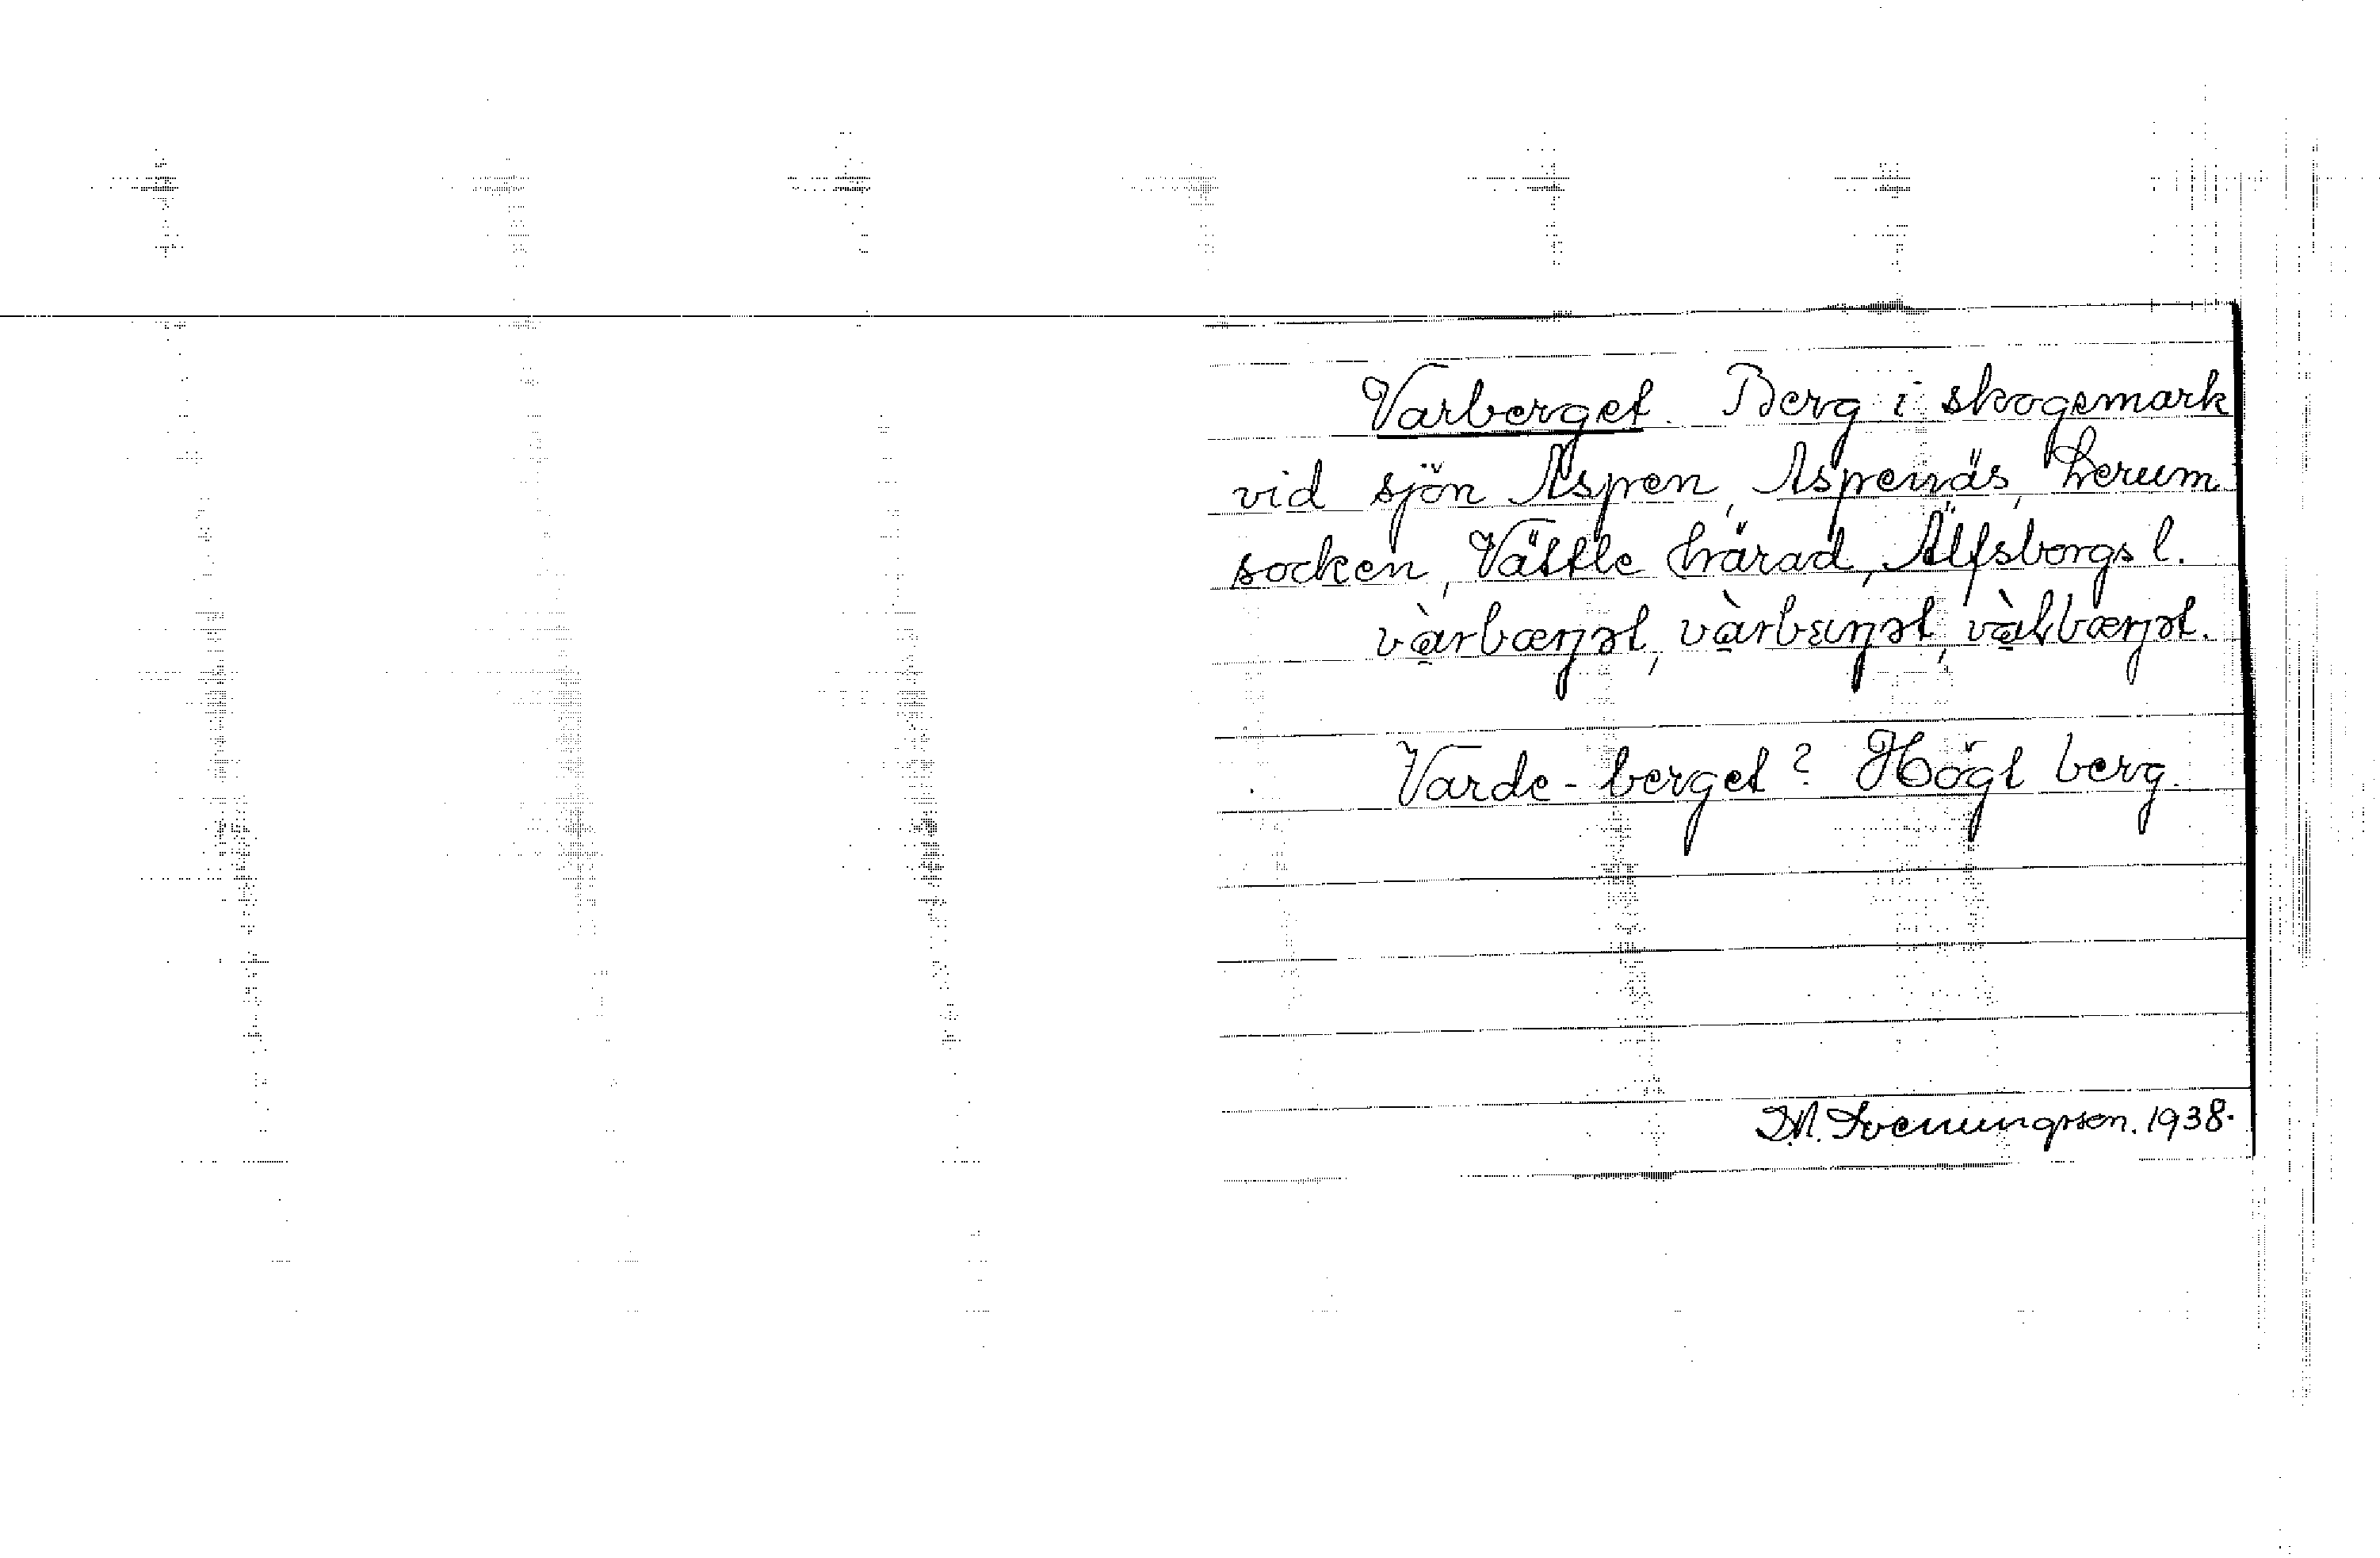 Varberget. Berg i skogsmark
vid sjön Aspen, Aspenäs, Lerum
socken, Vättle härad, Älfsborgs l.
vàrbærjət, vàrbɛrjət,
Varde-berget? Högt berg.
Svenungsson. 1938.